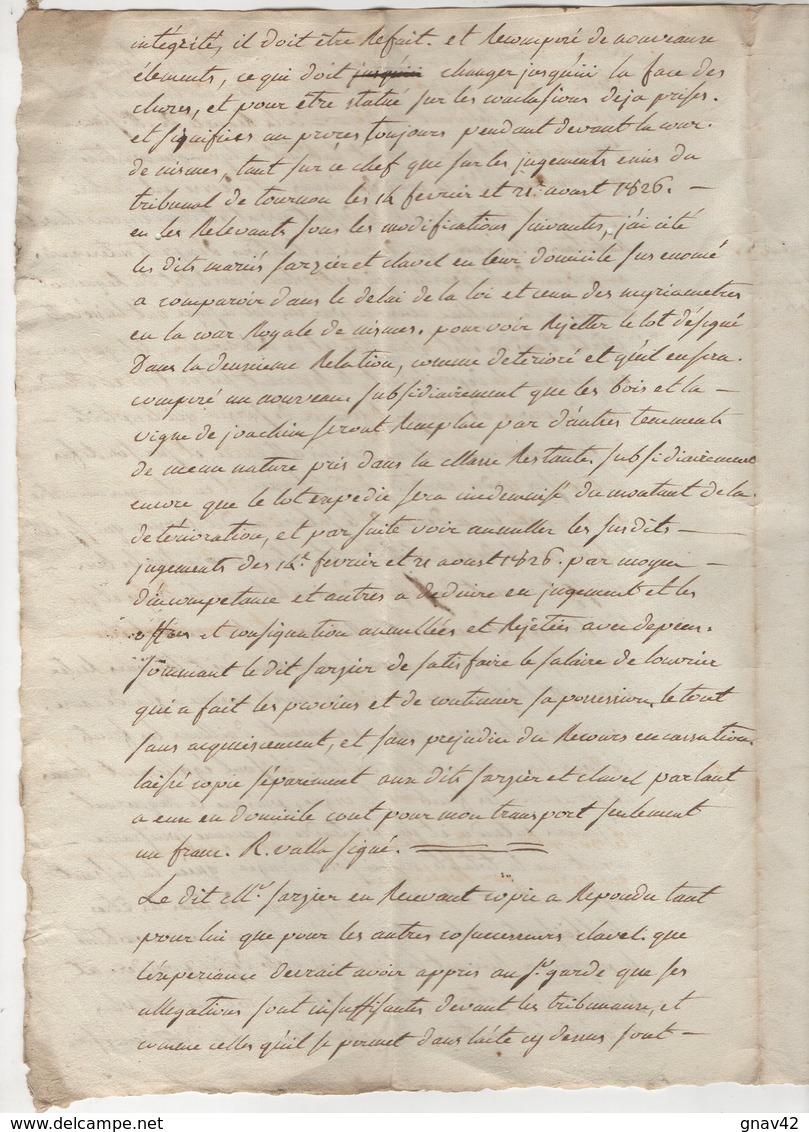 intégrité, il doit être Refait. et Recomposé de nouveaux
élements, ce qui doit changer jusquici la face des
choses, et pour être statué sur les conclusions deja prises.
et signifiées au procès toujours pendant devant la cour
de nismes, tant sur ce chef que sur les jugements emis du
tribunal de tournon les 14 fevrier et 21 aoust 1826. —
en les Relevants sous les modifications suivantes, j'ai cité
les dits mariés sarzier et clavel en leur domicile sus enomé
a comparoir dans le delai de la loi et ceux des myriametres
en la cour Royale de nismes. pour voir Rejetter le lot désigné
Dans la deuxieme Relation, comme deterioré et qu'il en sera
composé un nouveau. subsidiairement que les bois et la —
vigne de joachin seront Remplacé par d'autres tenements
de meme nature pris dans la Masse Restante, subsidiairement
encore que le lot expedié sera indemnisé du montant de la
deterioration, et par suite voir annuller les susdits —
jugements des 14 fevrier et 21 aoust 1826. par moyen —
d'incompetance et autres a deduire en jugement et les
offres et consignation annullées et Rejetées avec depens.
sommant le dit sarzier de satisfaire le salaire de louvrier
qui a fait les provins et de continuer sa possession, le tout
sans acquiscement, et sans prejudice du Recours en cassation
laissé copie séparement aux dits sarzier et clavel parlant
a eux en domicile cout pour mon transport seulement
un franc. R. valla signé.
Le dit Mr. sarzier en Recevant copie a Repondu tant
pour lui que pour les autres cosuccesseurs clavel. que
l'experiance devrait avoir appris au sr. garde que ses
allegations sont insuffisantes devant les tribunaux, et
comme celles qu'il se permet dans l'acte cy dessus sont —
gnav42